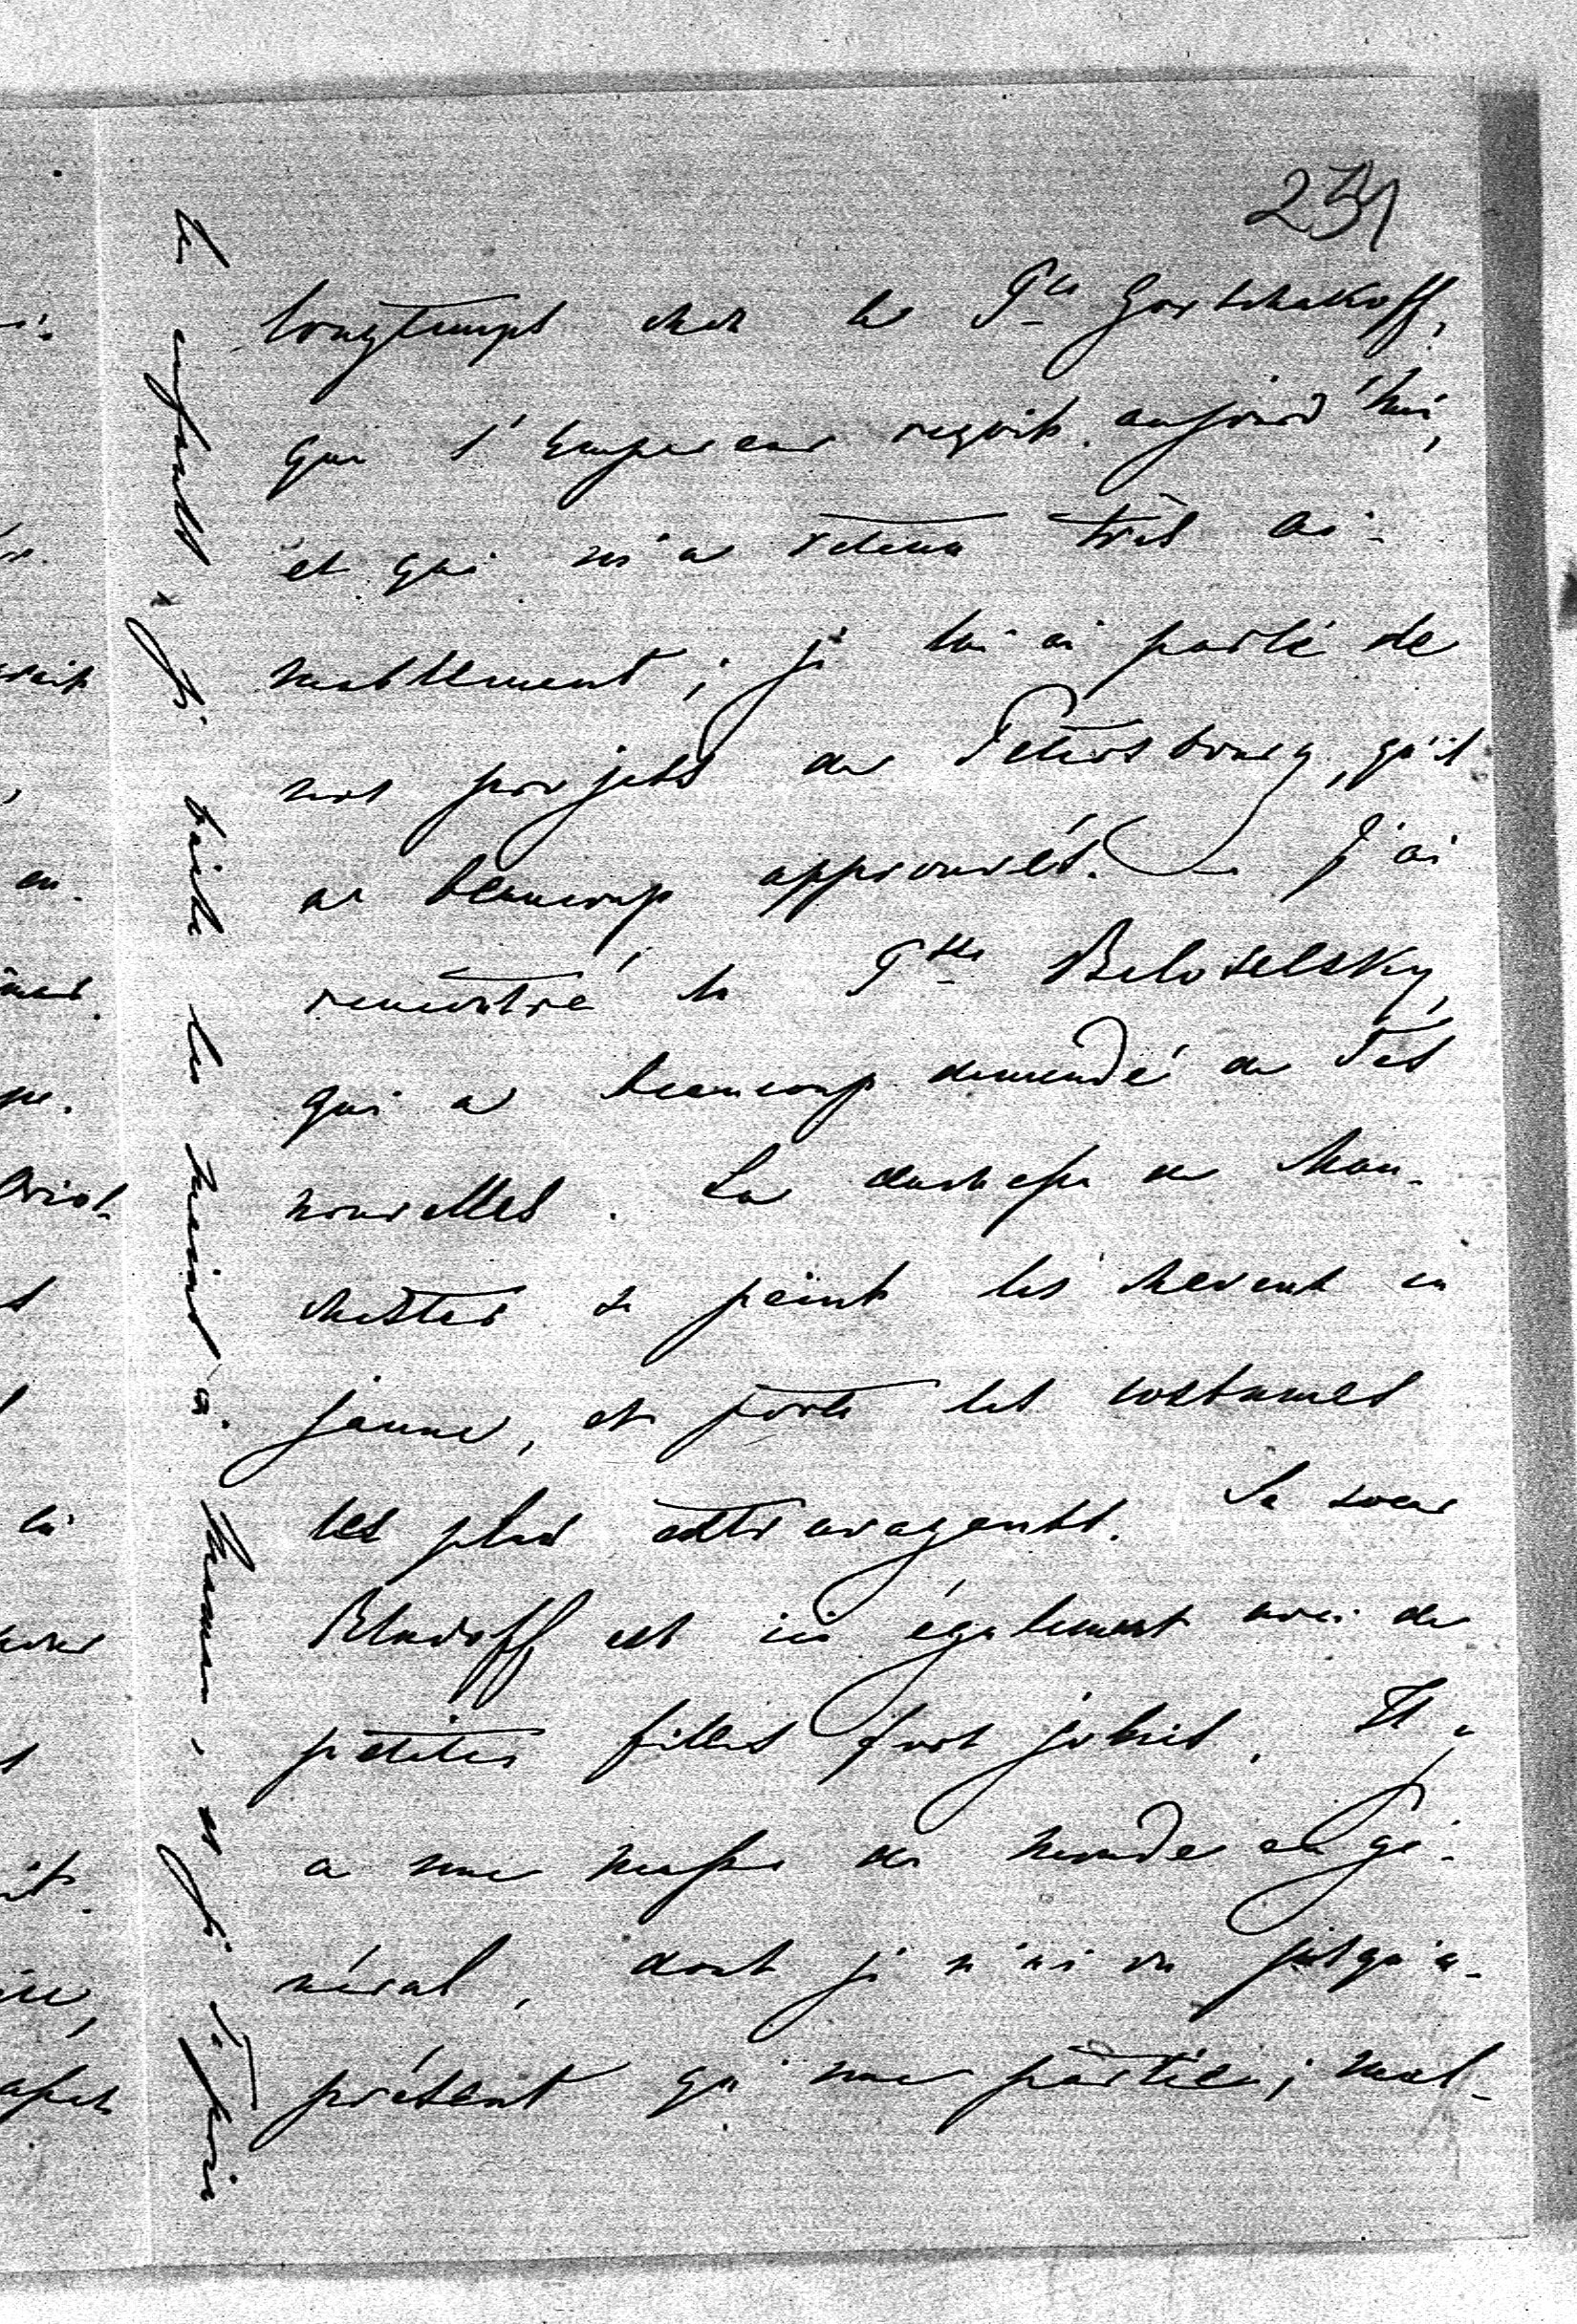 231
longtemps chez le Pce Gortchakoff,
que l'Empereur reçoit aujourd'hui,
et qui m'a retenu très ai-
mablement; je lui ai parlé de
nos projets de Pétersbourg, qu'il
a beaucoup approuvés. — J'ai
rencontré la Psse Beloselsky,
qui a beaucoup demandé de Tes
nouvelles. La duchesse de Man-
chester se peint les cheveux en
jaune, et porte les costumes
les plus extravagants. Sa soeur
Bludoff est ici également avec de
petites filles fort jolies. Il y
a une masse de monde en gé-
néral, dont je n'ai vu jusqu'à-
présent qu'une partie; mal-
les enfants. Je baise les mains à Maman, et je Te